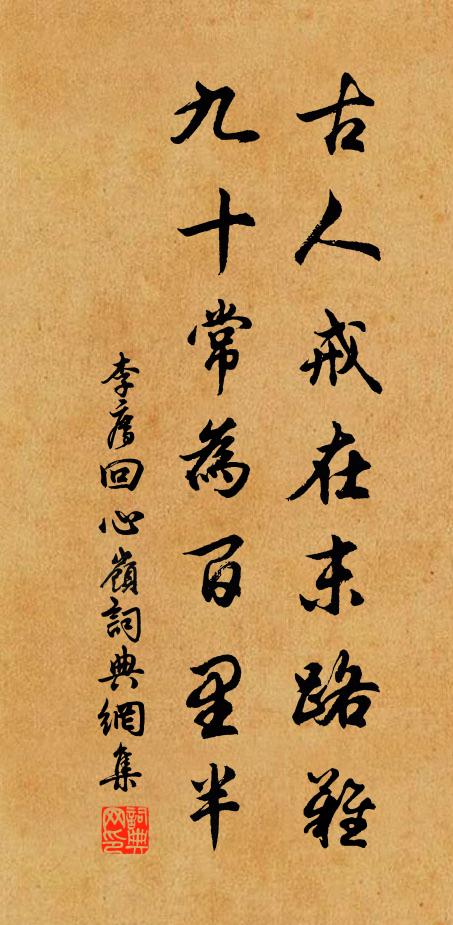 古人戒在末路難
九十常為百里半
李廌回心嶺詞典網集
詞典网印